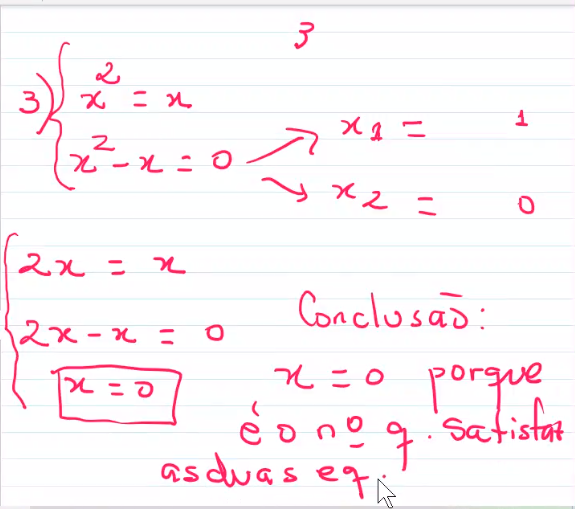 3
3) x² = x
x² - x = 0
x1 = 1
x2 = 0
2x = x
2x - x = 0
x = 0
Conclusão:
x = 0 porque
é o nº q. satisfaz
as duas eq.